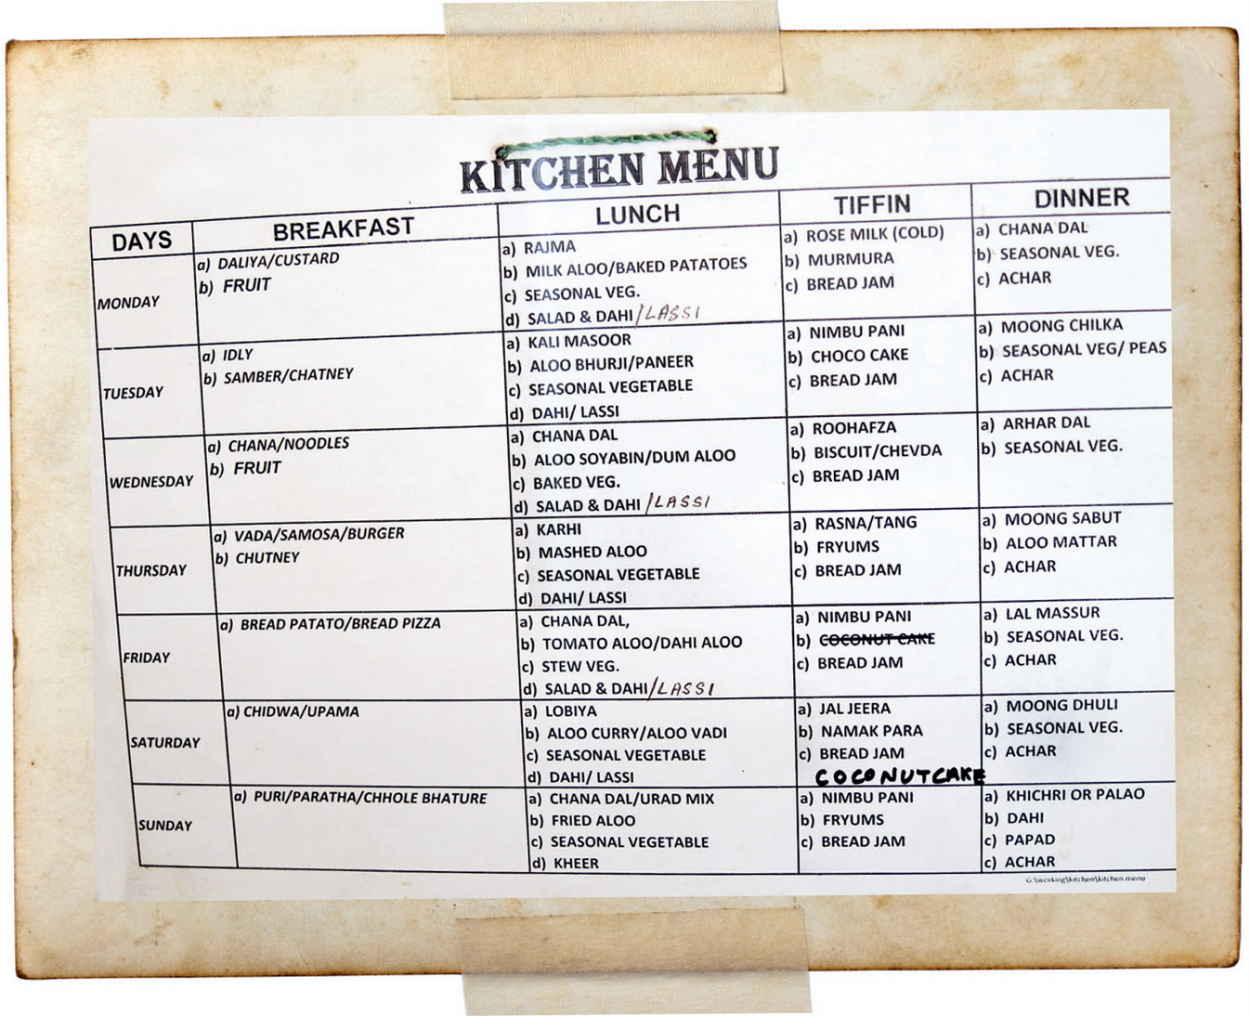 KITCHEN MENU
DAYS BREAKFAST LUNCH TIFFIN DINNER
MONDAY
a) DALIYA/CUSTARD
b) FRUIT
a) RAJMA
b) MILK ALOO/BAKED PATATOES
c) SEASONAL VEG.
d) SALAD & DAHI/LASSI
a) ROSE MILK (COLD)
b) MURMURA
c) BREAD JAM
a) CHANA DAL
b) SEASONAL VEG.
c) ACHAR
TUESDAY
a) IDLY
b) SAMBER/CHATNEY
a) KALI MASOOR
b) ALOO BHURJI/PANEER
c) SEASONAL VEGETABLE
d) DAHI/ LASSI
a) NIMBU PANI
b) CHOCO CAKE
c) BREAD JAM
a) MOONG CHILKA
b) SEASONAL VEG/ PEAS
c) ACHAR
WEDNESDAY
a) CHANA/NOODLES
b) FRUIT
a) CHANA DAL
b) ALOO SOYABIN/DUM ALOO
c) BAKED VEG.
d) SALAD & DAHI /LASSI
a) ROOHAFZA
b) BISCUIT/CHEVDA
c) BREAD JAM
a) ARHAR DAL
b) SEASONAL VEG.
THURSDAY
a) VADA/SAMOSA/BURGER
b) CHUTNEY
a) KARHI
b) MASHED ALOO
c) SEASONAL VEGETABLE
d) DAHI/ LASSI
a) RASNA/TANG
b) FRYUMS
c) BREAD JAM
a) MOONG SABUT
b) ALOO MATTAR
c) ACHAR
FRIDAY
a) BREAD PATATO/BREAD PIZZA
a) CHANA DAL,
b) TOMATO ALOO/DAHI ALOO
c) STEW VEG.
d) SALAD & DAHI/LASSI
a) NIMBU PANI
b) COCONUT CAKE
c) BREAD JAM
a) LAL MASSUR
b) SEASONAL VEG.
c) ACHAR
SATURDAY
a) CHIDWA/UPAMA
a) LOBIYA
b) ALOO CURRY/ALOO VADI
c) SEASONAL VEGETABLE
d) DAHI/ LASSI
a) JAL JEERA
b) NAMAK PARA
c) BREAD JAM
COCONUTCAKE
a) MOONG DHULI
b) SEASONAL VEG.
c) ACHAR
SUNDAY
a) PURI/PARATHA/CHHOLE BHATURE
a) CHANA DAL/URAD MIX
b) FRIED ALOO
c) SEASONAL VEGETABLE
d) KHEER
a) NIMBU PANI
b) FRYUMS
c) BREAD JAM
a) KHICHRI OR PALAO
b) DAHI
c) PAPAD
c) ACHAR